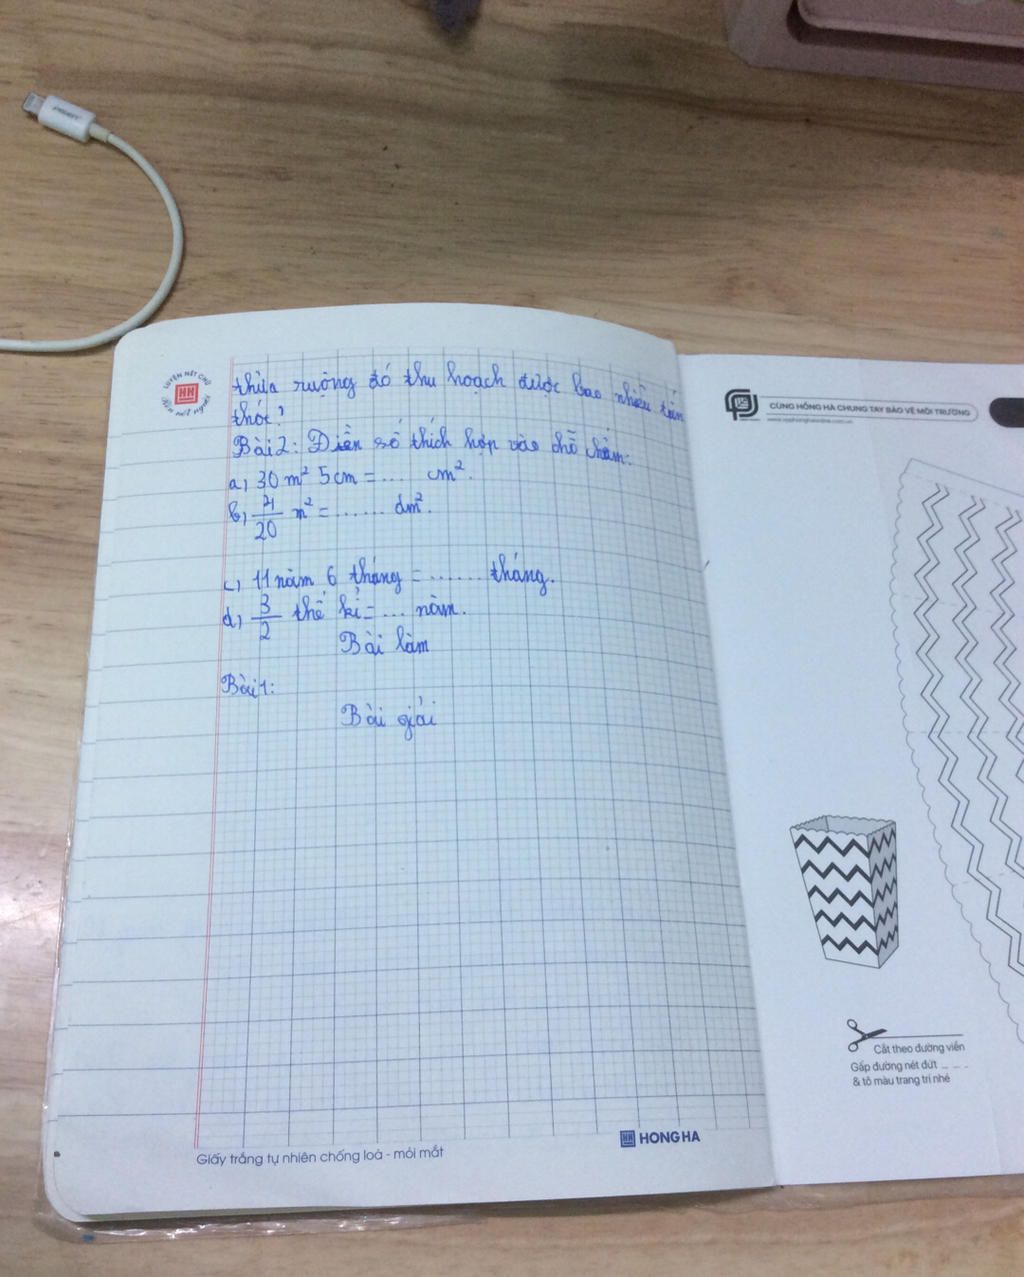 LUYỆN NÉT CHỮ
HH
Rèn nết người
thửa ruộng đó thu hoạch được bao nhiêu tấn
thóc?
Bài 2: Điền số thích hợp vào chỗ chấm:
a, 30 m² 5cm = ... cm².
b, 4/20 m² = ...... dm².
c, 11 năm 6 tháng = ...... tháng.
d, 3/2 thế kỉ = ... năm.
Bài làm
Bài 1:
Bài giải
Giấy trắng tự nhiên chống loá - mỏi mắt
HH HONG HA
CÙNG HỒNG HÀ CHUNG TAY BẢO VỆ MÔI TRƯỜNG
Cắt theo đường viền
Gấp đường nét đứt _ _ _
& tô màu trang trí nhé